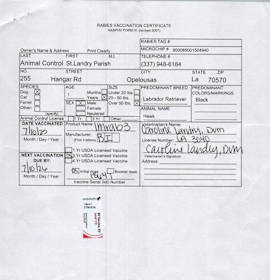 RABIES VACCINATION CERTIFICATE
NASPHV FORM 51 (revised 2007)
RABIES TAG #
MICROCHIP #
Owner's Name & Address Print Clearly
LAST FIRST M.I. TELEPHONE #
Animal Control St.Landry Parish (337) 948-6184
NO. STREET CITY STATE ZIP
255 Hangar Rd Opelousas La 70570
SPECIES AGE SIZE PREDOMINANT BREED PREDOMINANT COLORS/MARKINGS
Dog Months Under 20 lbs. Labrador Retriever Black
Cat Years 20 - 50 lbs.
SEX Male Over 50 lbs.
Female ANIMAL NAME
Neutered
Animal Control License
DATE VACCINATED Product Name: Imrab3 Veterinarian's Name:
7/10/23 Manufacturer: Caroline Landry, DVM
Month / Day / Year BI License Number: LA 3040
NEXT VACCINATION 1 Yr USDA Licensed Vaccine Caroline Landry, DVM
DUE BY: 3 Yr USDA Licensed Vaccine Veterinarian's Signature
7/10/26 4 Yr USDA Licensed Vaccine Address:
Month / Day / Year Initial dose Booster dose
Vaccine Serial (lot) Number